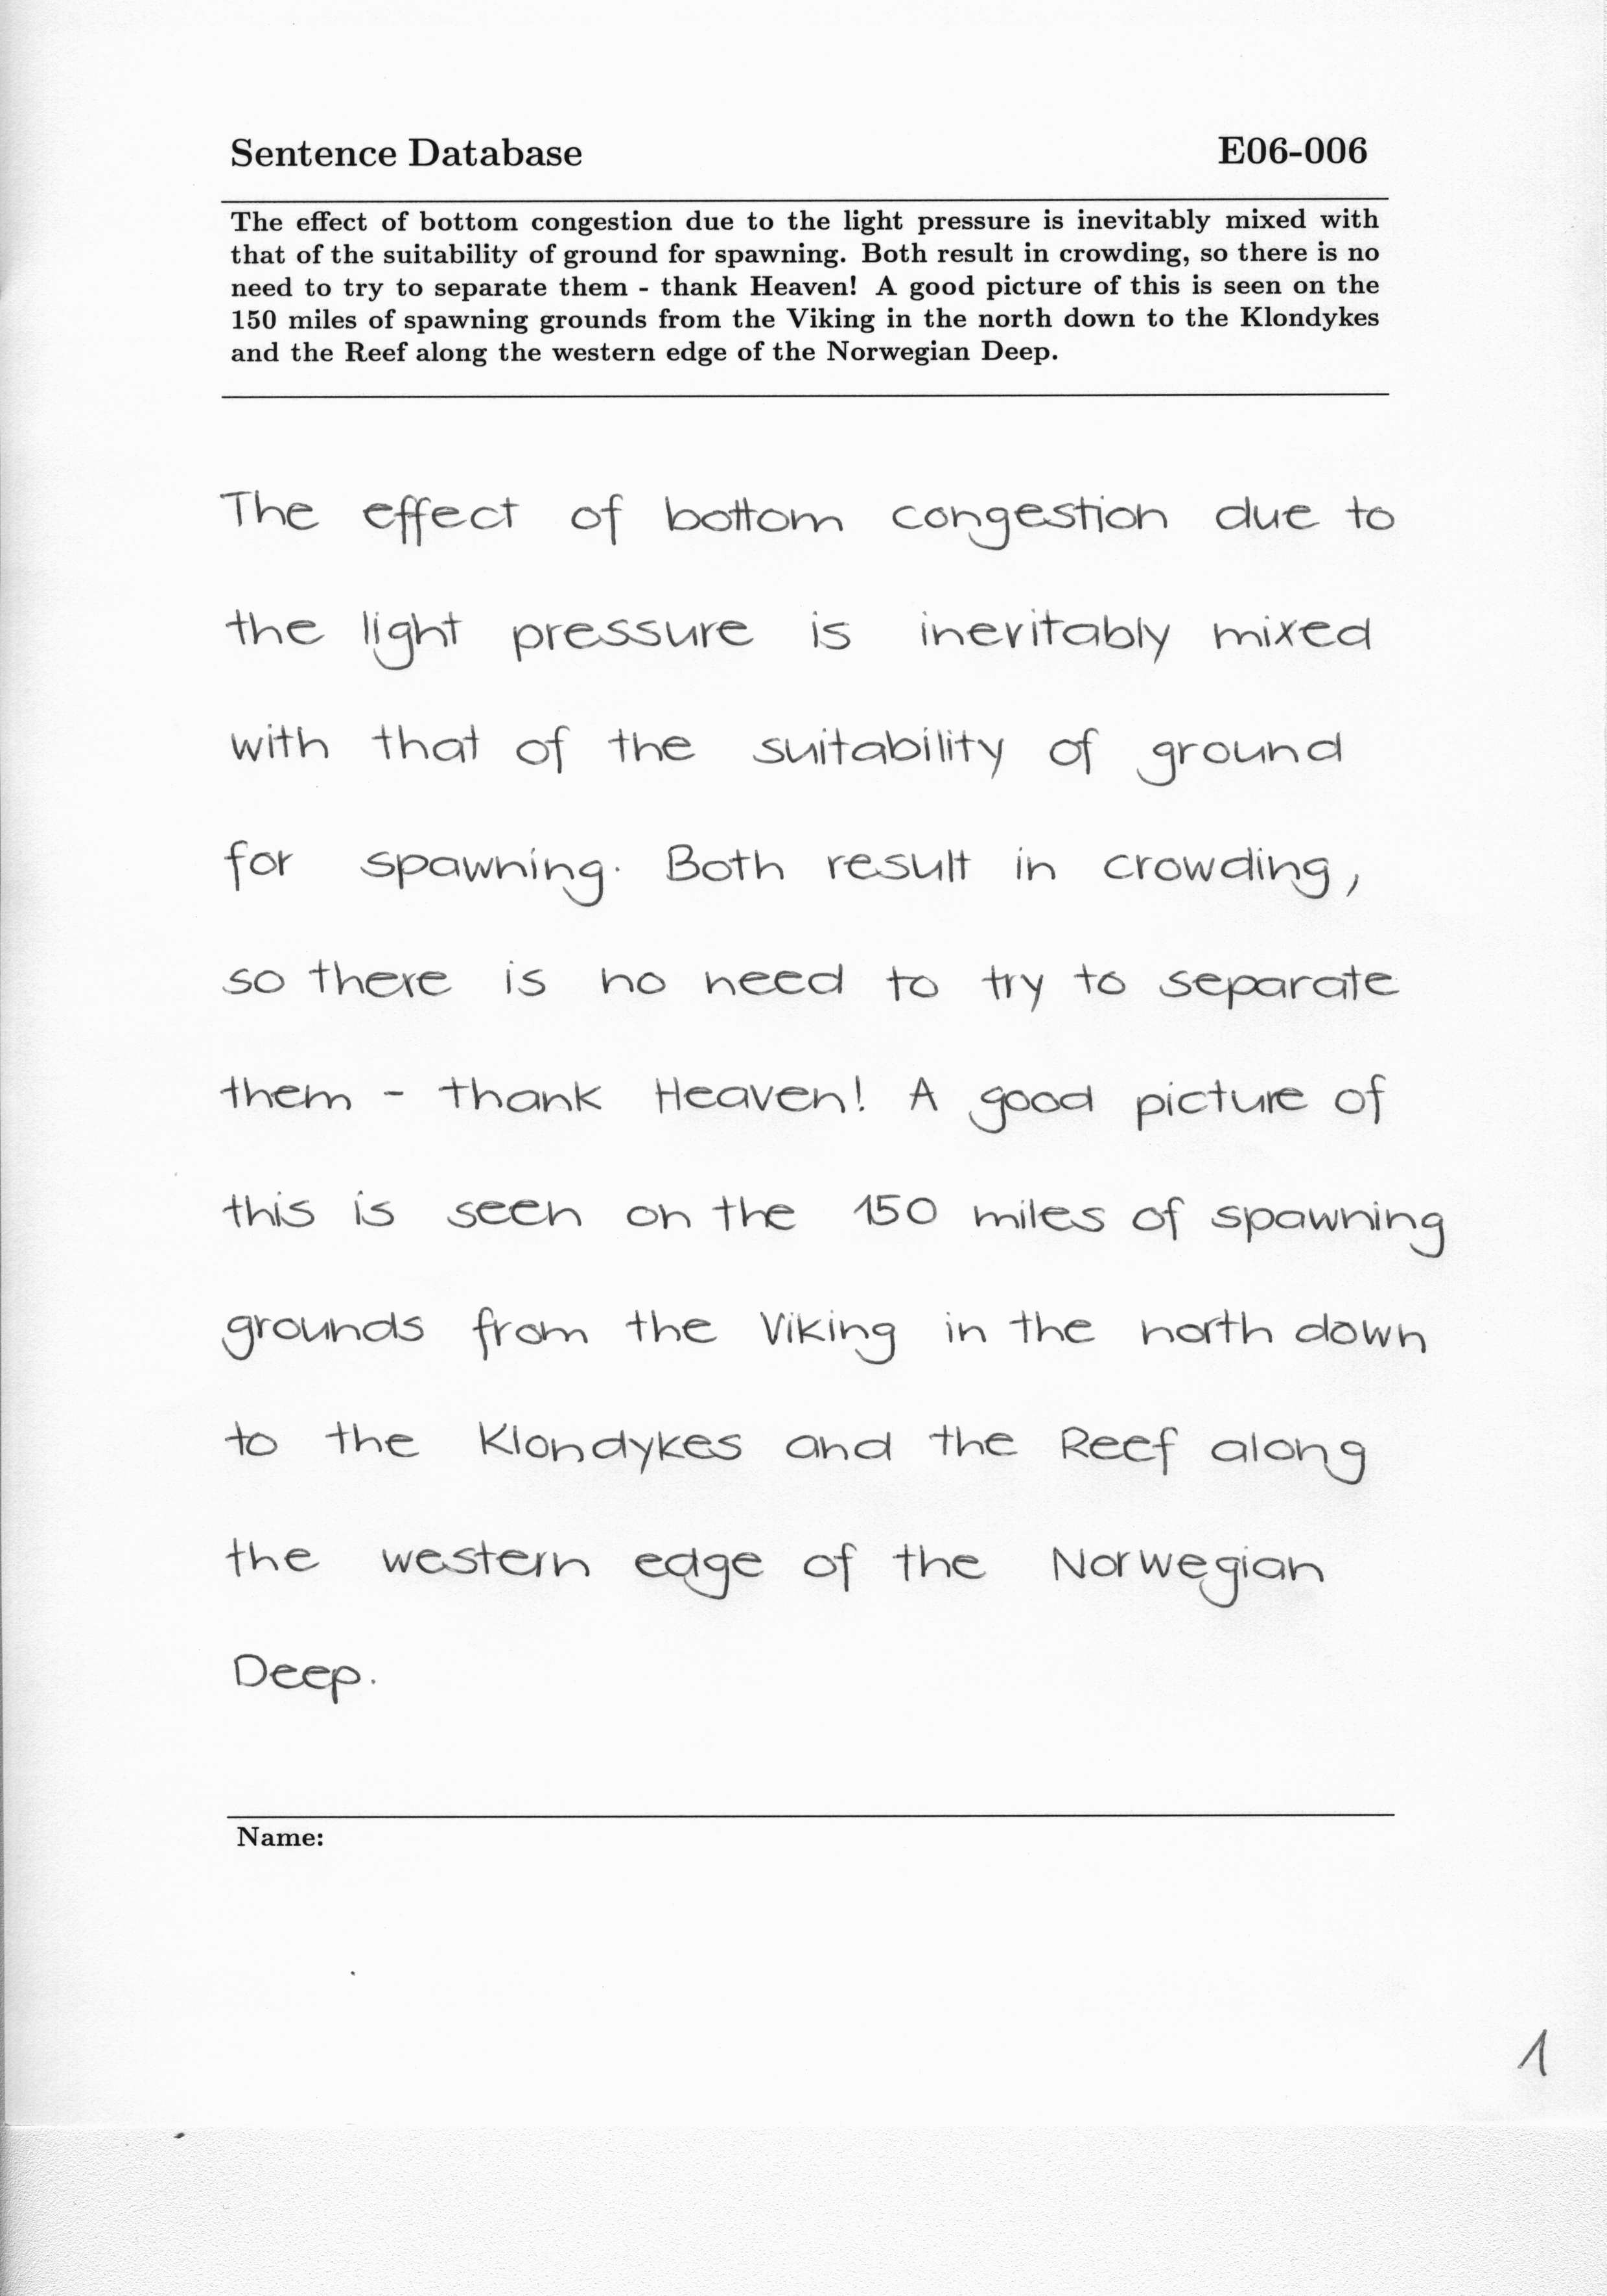 Sentence Database E06-006
The effect of bottom congestion due to the light pressure is inevitably mixed with
that of the suitability of ground for spawning. Both result in crowding, so there is no
need to try to separate them - thank Heaven! A good picture of this is seen on the
150 miles of spawning grounds from the Viking in the north down to the Klondykes
and the Reef along the western edge of the Norwegian Deep.
The effect of bottom congestion due to
the light pressure is inevitably mixed
with that of the suitability of ground
for spawning. Both result in crowding,
so there is no need to try to separate
them - thank Heaven! A good picture of
this is seen on the 150 miles of spawning
grounds from the Viking in the north down
to the Klondykes and the Reef along
the western edge of the Norwegian
Deep.
Name:
1